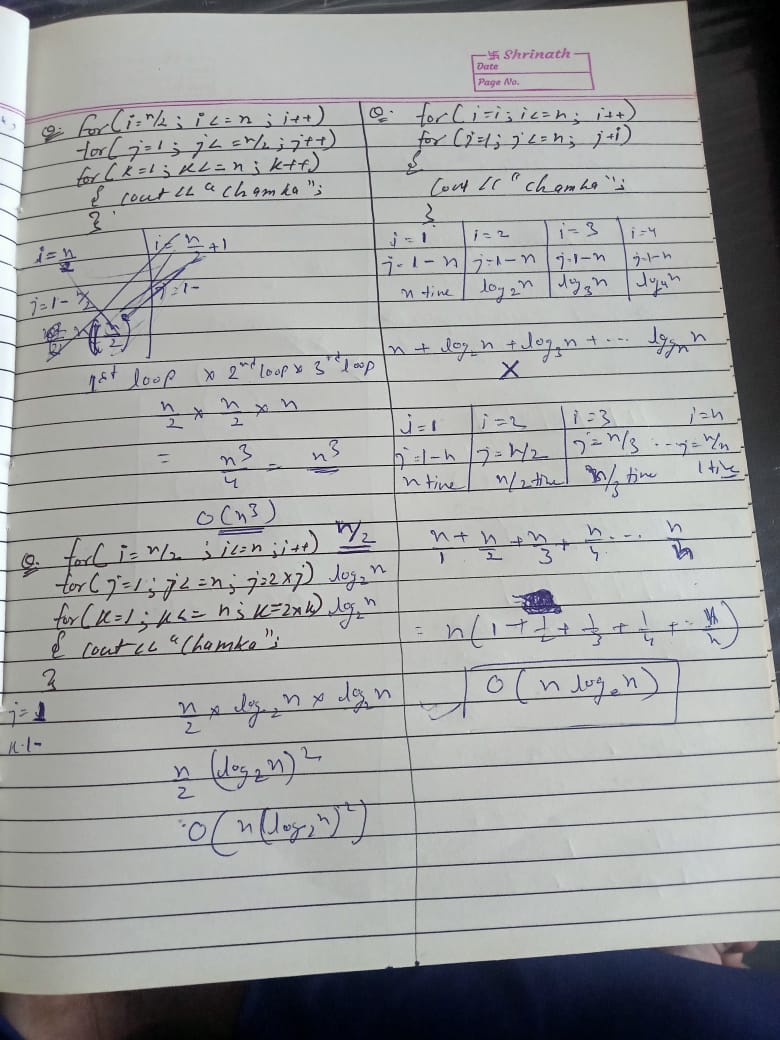 卐 Shrinath
Date
Page No.
Q. for(i=n/2 ; i<=n ; i++)
for( j=1 ; j<=n/2 ; j++)
for(k=1 ; k<=n ; k++)
{ cout << "Chamka";
}
i=n/2 | i=n/2+1
j=1-n/2 | j=1-
1st loop x 2nd loop x 3rd loop
n/2 x n/2 x n
= n³/4 = n³
O(n³)
Q. for( i=n/2 ; i<=n ; i++) n/2
for( j=1 ; j<=n ; j=2xj) log₂n
for(k=1 ; k<=n ; k=2xk) log₂n
{ cout << "Chamka";
}
j=1
k.1-
n/2 x log₂n x log₂n
n/2 (log₂n)²
O(n(log₂n)²)
Q. for(i=i; i<=n; i++)
for (j=1; j<=n; j+i)
{
Cout << "Chamka";
}
i=1 | i=2 | i=3 | i=4
j=1-n | j=1-n | j=1-n | j-1-n
n time | log₂n | log₃n | log₄n
n + log₂n + log₃n + ... logₙn
X
i=1 | i=2 | i=3 i=n
j=1-n | j=n/2 | j=n/3 ... j=n/n
n time | n/2 time | n/3 time 1 time
n/1 + n/2 + n/3 + n/4 ... n/n
= n(1 + 1/2 + 1/3 + 1/4 + .. 1/n)
O(n logₑn)